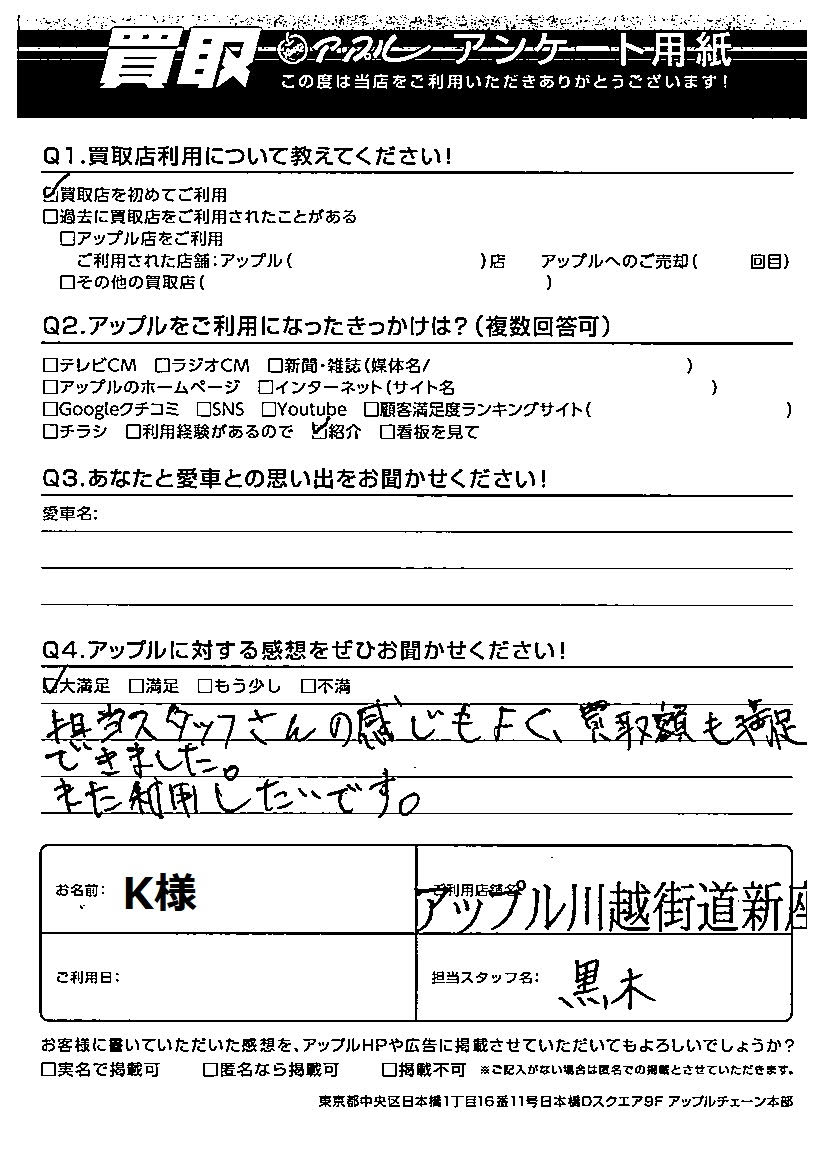 買取 アップル アンケート用紙
この度は当店をご利用いただきありがとうございます!
Q1.買取店利用について教えてください!
☑買取店を初めてご利用
□過去に買取店をご利用されたことがある
□アップル店をご利用
ご利用された店舗:アップル( )店 アップルへのご売却( 回目)
□その他の買取店( )
Q2.アップルをご利用になったきっかけは?(複数回答可)
□テレビCM □ラジオCM □新聞・雑誌(媒体名/ )
□アップルのホームページ □インターネット(サイト名 )
□Googleクチコミ □SNS □Youtube □顧客満足度ランキングサイト( )
□チラシ □利用経験があるので ☑紹介 □看板を見て
Q3.あなたと愛車との思い出をお聞かせください!
愛車名:
Q4.アップルに対する感想をぜひお聞かせください!
☑大満足 □満足 □もう少し □不満
担当スタッフさんの感じもよく、買取額も満足
できました。
また利用したいです。
お名前: K様
ご利用店舗名
アップル川越街道新座
ご利用日:
担当スタッフ名: 黒木
お客様に書いていただいた感想を、アップルHPや広告に掲載させていただいてもよろしいでしょうか?
□実名で掲載可 □匿名なら掲載可 □掲載不可 ※ご記入がない場合は匿名での掲載とさせていただきます。
東京都中央区日本橋1丁目16番11号日本橋Dスクエア9F アップルチェーン本部